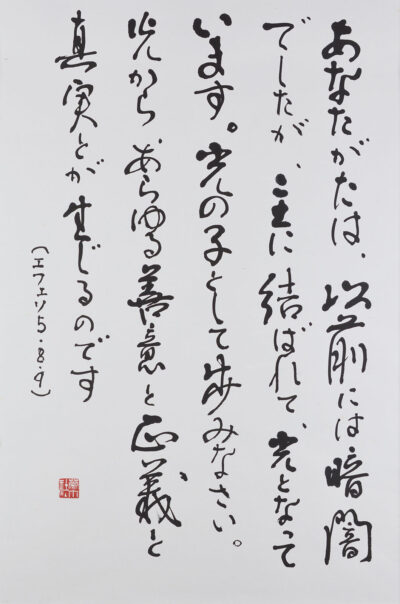 あなたがたは、以前には暗闇
でしたが、主に結ばれて、光となって
います。光の子として歩みなさい。
光から、あらゆる善意と正義と
真実とが生じるのです
（エフェソ5・8.9）